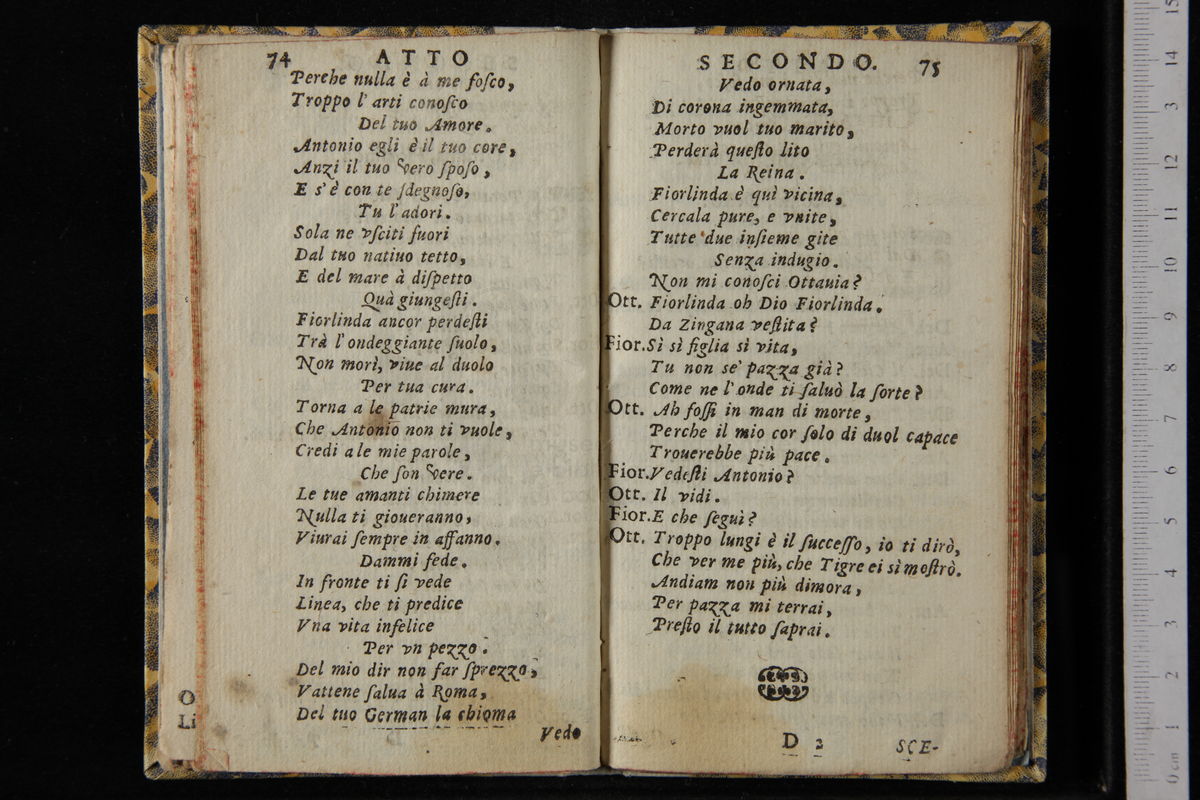 74 ATTO
Perche nulla è à me foſco,
Troppo l' arti conoſco
Del tuo Amore.
Antonio egli è il tuo core,
Anzi il tuo vero ſpoſo,
E s' è con te ſdegnoſo,
Tu l' adori.
Sola ne vſciti fuori
Dal tuo natiuo tetto,
E del mare à diſpetto
Quà giungeſti.
Fiorlinda ancor perdeſti
Trà l' ondeggiante ſuolo,
Non morì, viue al duolo
Per tua cura.
Torna a le patrie mura,
Che Antonio non ti vuole,
Credi a le mie parole,
Che ſon vere.
Le tue amanti chimere
Nulla ti gioueranno,
Viurai ſempre in affanno.
Dammi fede.
In fronte ti ſi vede
Linea, che ti predice
Vna vita infelice
Per vn pezzo.
Del mio dir non far ſprezzo,
Vattene ſalua à Roma,
Del tuo German la chioma
Vedo
O
Li
SECONDO. 75
Vedo ornata,
Di corona ingemmata,
Morto vuol tuo marito,
Perderà queſto lito
La Reina.
Fiorlinda è quì vicina,
Cercala pure, e vnite,
Tutte due inſieme gite
Senza indugio.
Non mi conoſci Ottauia?
Ott. Fiorlinda oh Dio Fiorlinda.
Da Zingana veſtita?
Fior. Sì sì figlia sì vita,
Tu non se' pazza già?
Come ne l' onde ti ſaluò la ſorte?
Ott. Ah foſſi in man di morte,
Perche il mio cor ſolo di duol capace
Trouerebbe più pace.
Fior. Vedeſti Antonio?
Ott. Il vidi.
Fior. E che ſeguì?
Ott. Troppo lungi è il ſucceſſo, io ti dirò,
Che ver me più, che Tigre ei sì moſtrò.
Andiam non più dimora,
Per pazza mi terrai,
Preſto il tutto ſaprai.
D 2 SCE-
15
14
3
12
11
10
9
8
7
6
5
4
3
2
1
0 cm